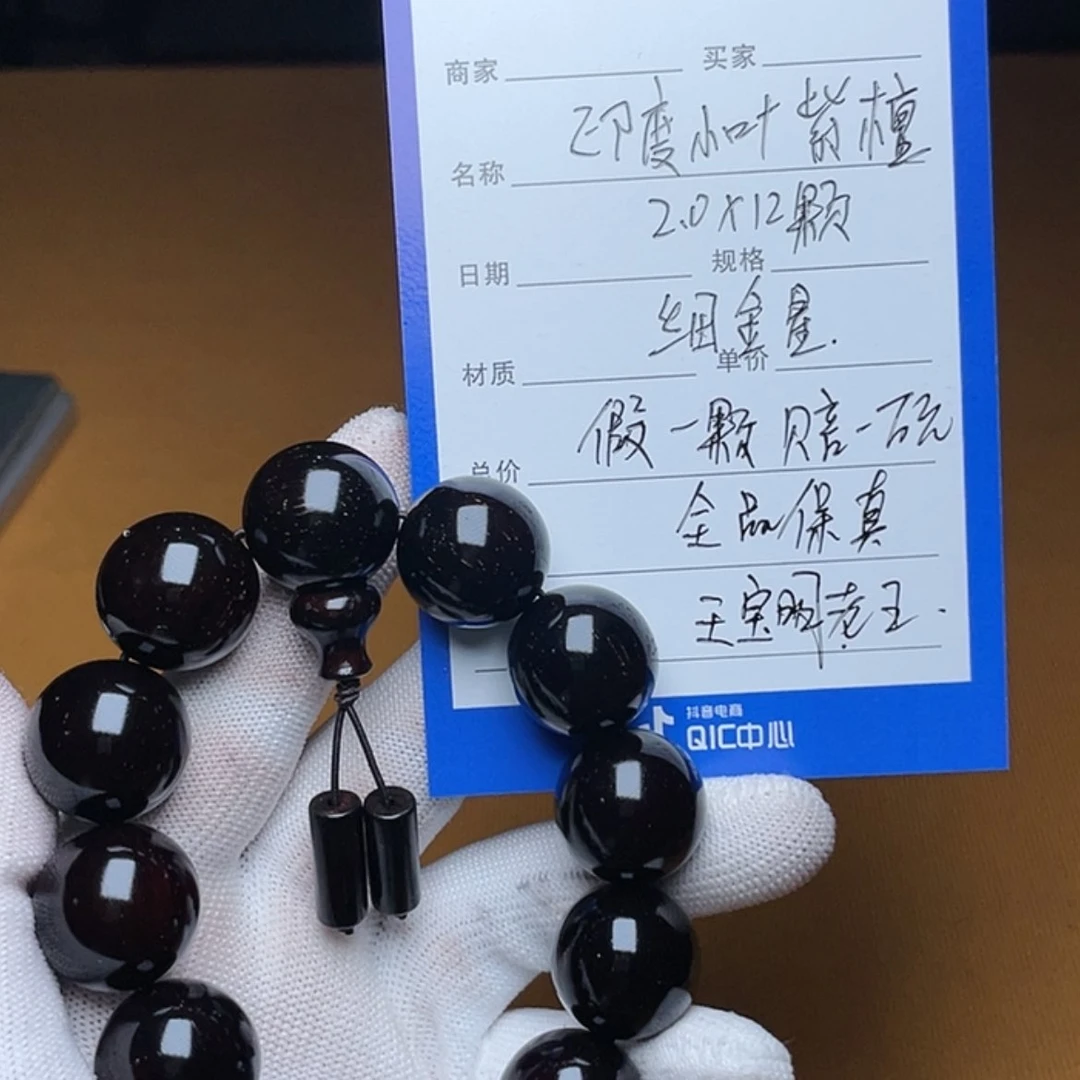 商家 买家
印度小叶紫檀
名称
2.0×12颗
日期 规格
细金星.
材质 单价
假一颗赔一万元
总价
全品保真
王宝明老王.
抖音电商
QIC中心